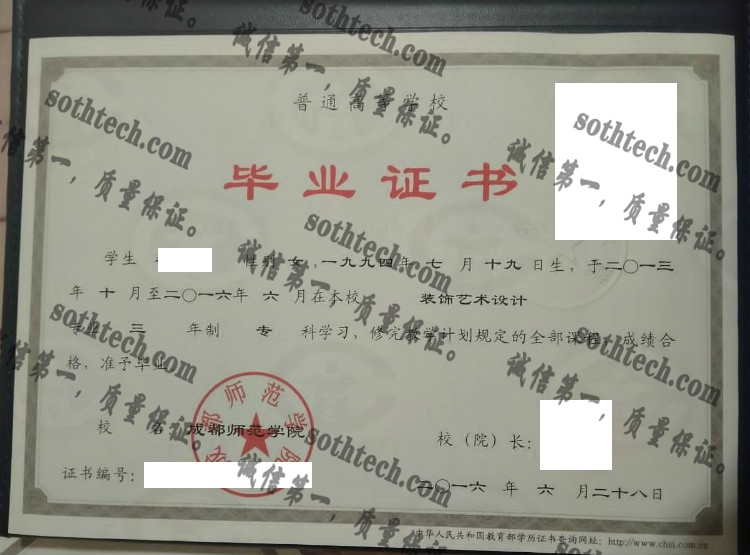 普通高等学校
毕业证书
学生 性别 女 ,一九九四年 七 月 十九 日生, 于二〇一三
年 十 月至二〇一六年 六 月在本校 装饰艺术设计
专业 三 年制 专 科学习, 修完教学计划规定的全部课程, 成绩合
格, 准予毕业
校 名: 成都师范学院
校（院）长:
证书编号:
二〇一六 年 六 月二十八日
中华人民共和国教育部学历证书查询网址: http://www.chsi.com.cn
成都师范学院
sothtech.com
诚信第一，质量保证。
sothtech.com
诚信第一，质量保证。
sothtech.com
诚信第一，质量保证。
sothtech.com
诚信第一，质量保证。
sothtech.com
诚信第一，质量保证。
sothtech.com
诚信第一，质量保证。
sothtech.com
诚信第一，质量保证。